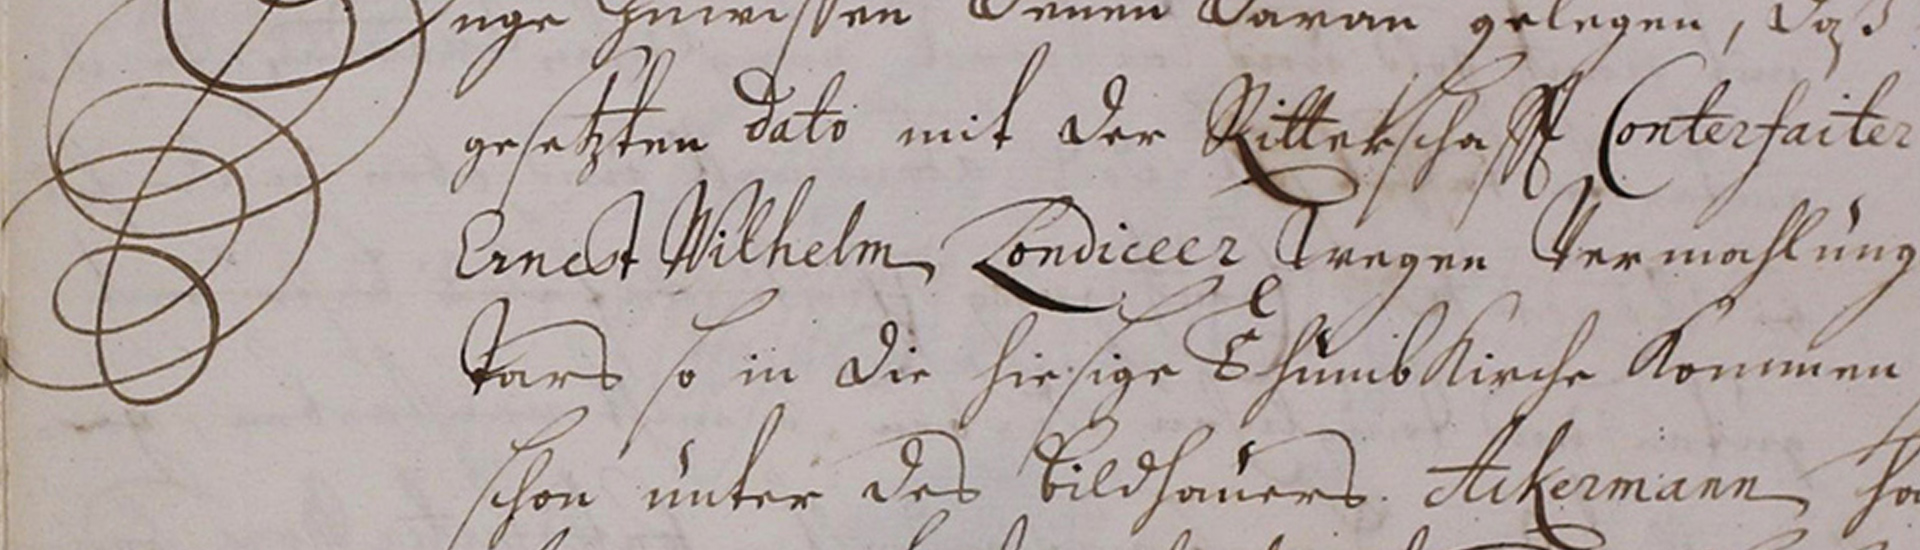 -nge zuwissen denen daran gelegen, daß
gesetzten dato mit der Ritterschafft Conterfaiter
Ernest Wilhelm Londiceer wegen Vermahlung
tars so in die hiesige Thumb Kirche Kommen
schon unter des Bildhauers Ackermann